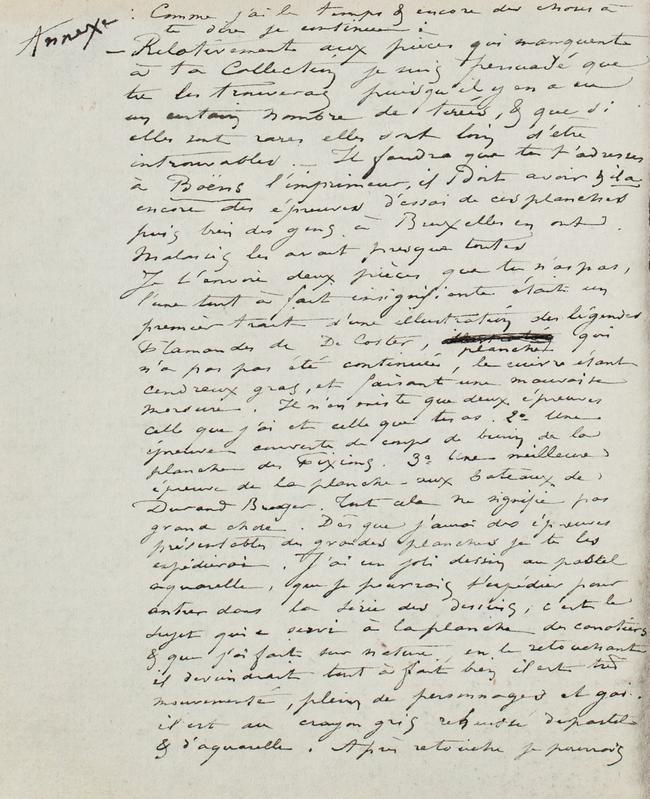 Annexe : Comme j'ai le temps & encore des choses à
te dire je continue :
– Relativement aux pièces qui manquent
à ta Collection je suis persuadé que
tu les trouveras puisqu'il y en a eu
un certain nombre de tirés, & que si
elles sont rares elles sont loin d'être
introuvables. – Il faudra que tu t'adresses
à Boëns l'imprimeur, il doit avoir
encore des épreuves d'essai de ces planches
puis bien des gens à Bruxelles en ont.
Malassis les avait presque toutes
Je t'envoie deux pièces que tu n'as pas,
l'une tout à fait insignifiante étant un
premier trait d'une illustration des légendes
Flamandes de De Coster, planche qui
n'a pas pas été continuée, le cuivre étant
cendreux gras, et faisant une mauvaise
morsure. Il n'en existe que deux épreuves
celle que j'ai et celle que tu as. 2° Une
épreuve couverte de coups de burin de la
planche des Fixing. 3° Une meilleure
épreuve de la planche aux bateaux de
Durand Brager. Tout cela ne signifie pas
grand chose. Dès que j'aurai des épreuves
présentables des grandes planches je te les
expédierai. J'ai un joli dessin au pastel
aquarelle, que je pourrais t'expédier pour
entrer dans la série des dessins, c'est le
sujet qui a servi à la planche des canotiers
& que j'ai fait sur nature, en le retouchant
il deviendrait tout à fait bien il est très
mouvementé, plein de personnages et gai.
il est au crayon gris rehaussé de pastel
& d'aquarelle. Après retouche je pourrais